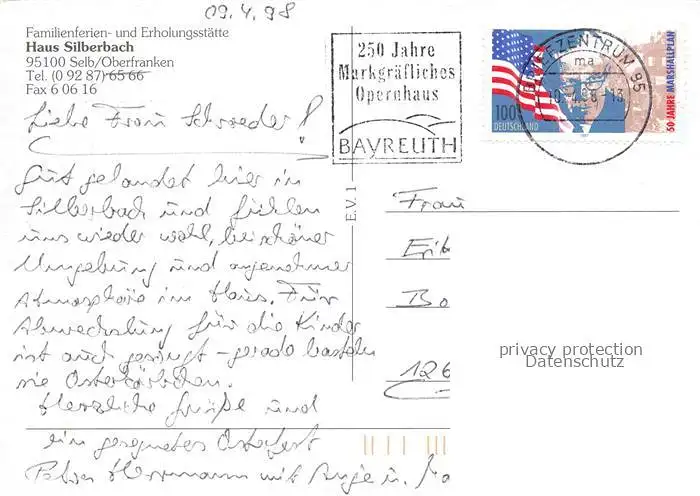 09.4.98
Familienferien- und Erholungsstätte
Haus Silberbach
95100 Selb/Oberfranken
Tel. (0 92 87) 65 66
Fax 6 06 16
250 Jahre
Markgräfliches
Opernhaus
BAYREUTH
BRIEFZENTRUM 95
ma
100
DEUTSCHLAND
50 JAHRE MARSHALLPLAN
Liebe Frau Schroeder!
Gut gelandet hier in
Silberbach und fühlen
uns wieder wohl, bei schöner
Umgebung und angenehmer
Atmosphäre im Haus. Für
Abwechslung für die Kinder
ist auch gesorgt - gerade basteln
sie Osterkörbchen.
Herzliche Grüße und
ein gesegnetes Osterfest
Herrmann mit u.
E.V. 1
Frau
Bo
126
privacy protection
Datenschutz